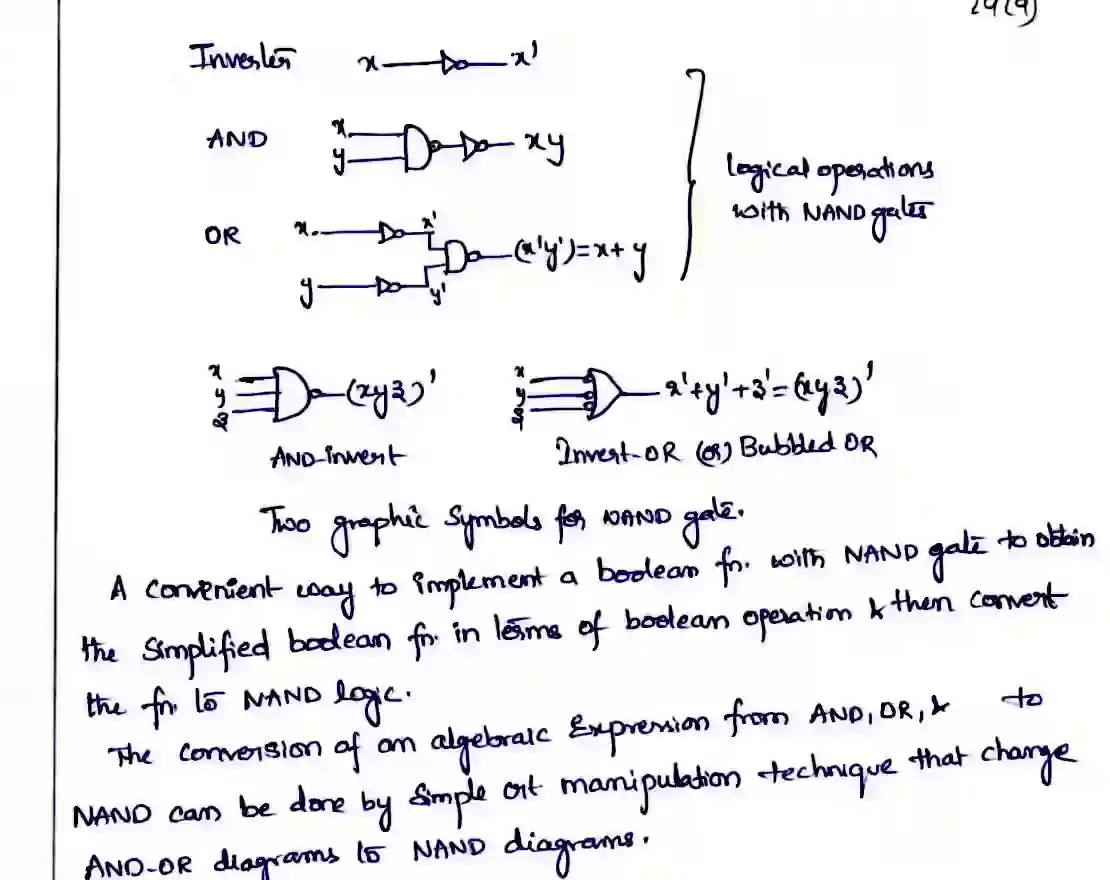 Inverter x x'
AND x y xy
OR x x' y y' (x'y')=x+y
logical operations
with NAND gates
x y z (xyz)' x y z x'+y'+z'=(xyz)'
AND-invert Invert-OR (or) Bubbled OR
Two graphic symbols for NAND gate.
A convenient way to implement a boolean fn. with NAND gate to obtain
the simplified boolean fn. in terms of boolean operation & then convert
the fn. to NAND logic.
The conversion of an algebraic Expression from AND, OR, & to
NAND can be done by simple ckt manipulation technique that change
AND-OR diagrams to NAND diagrams.